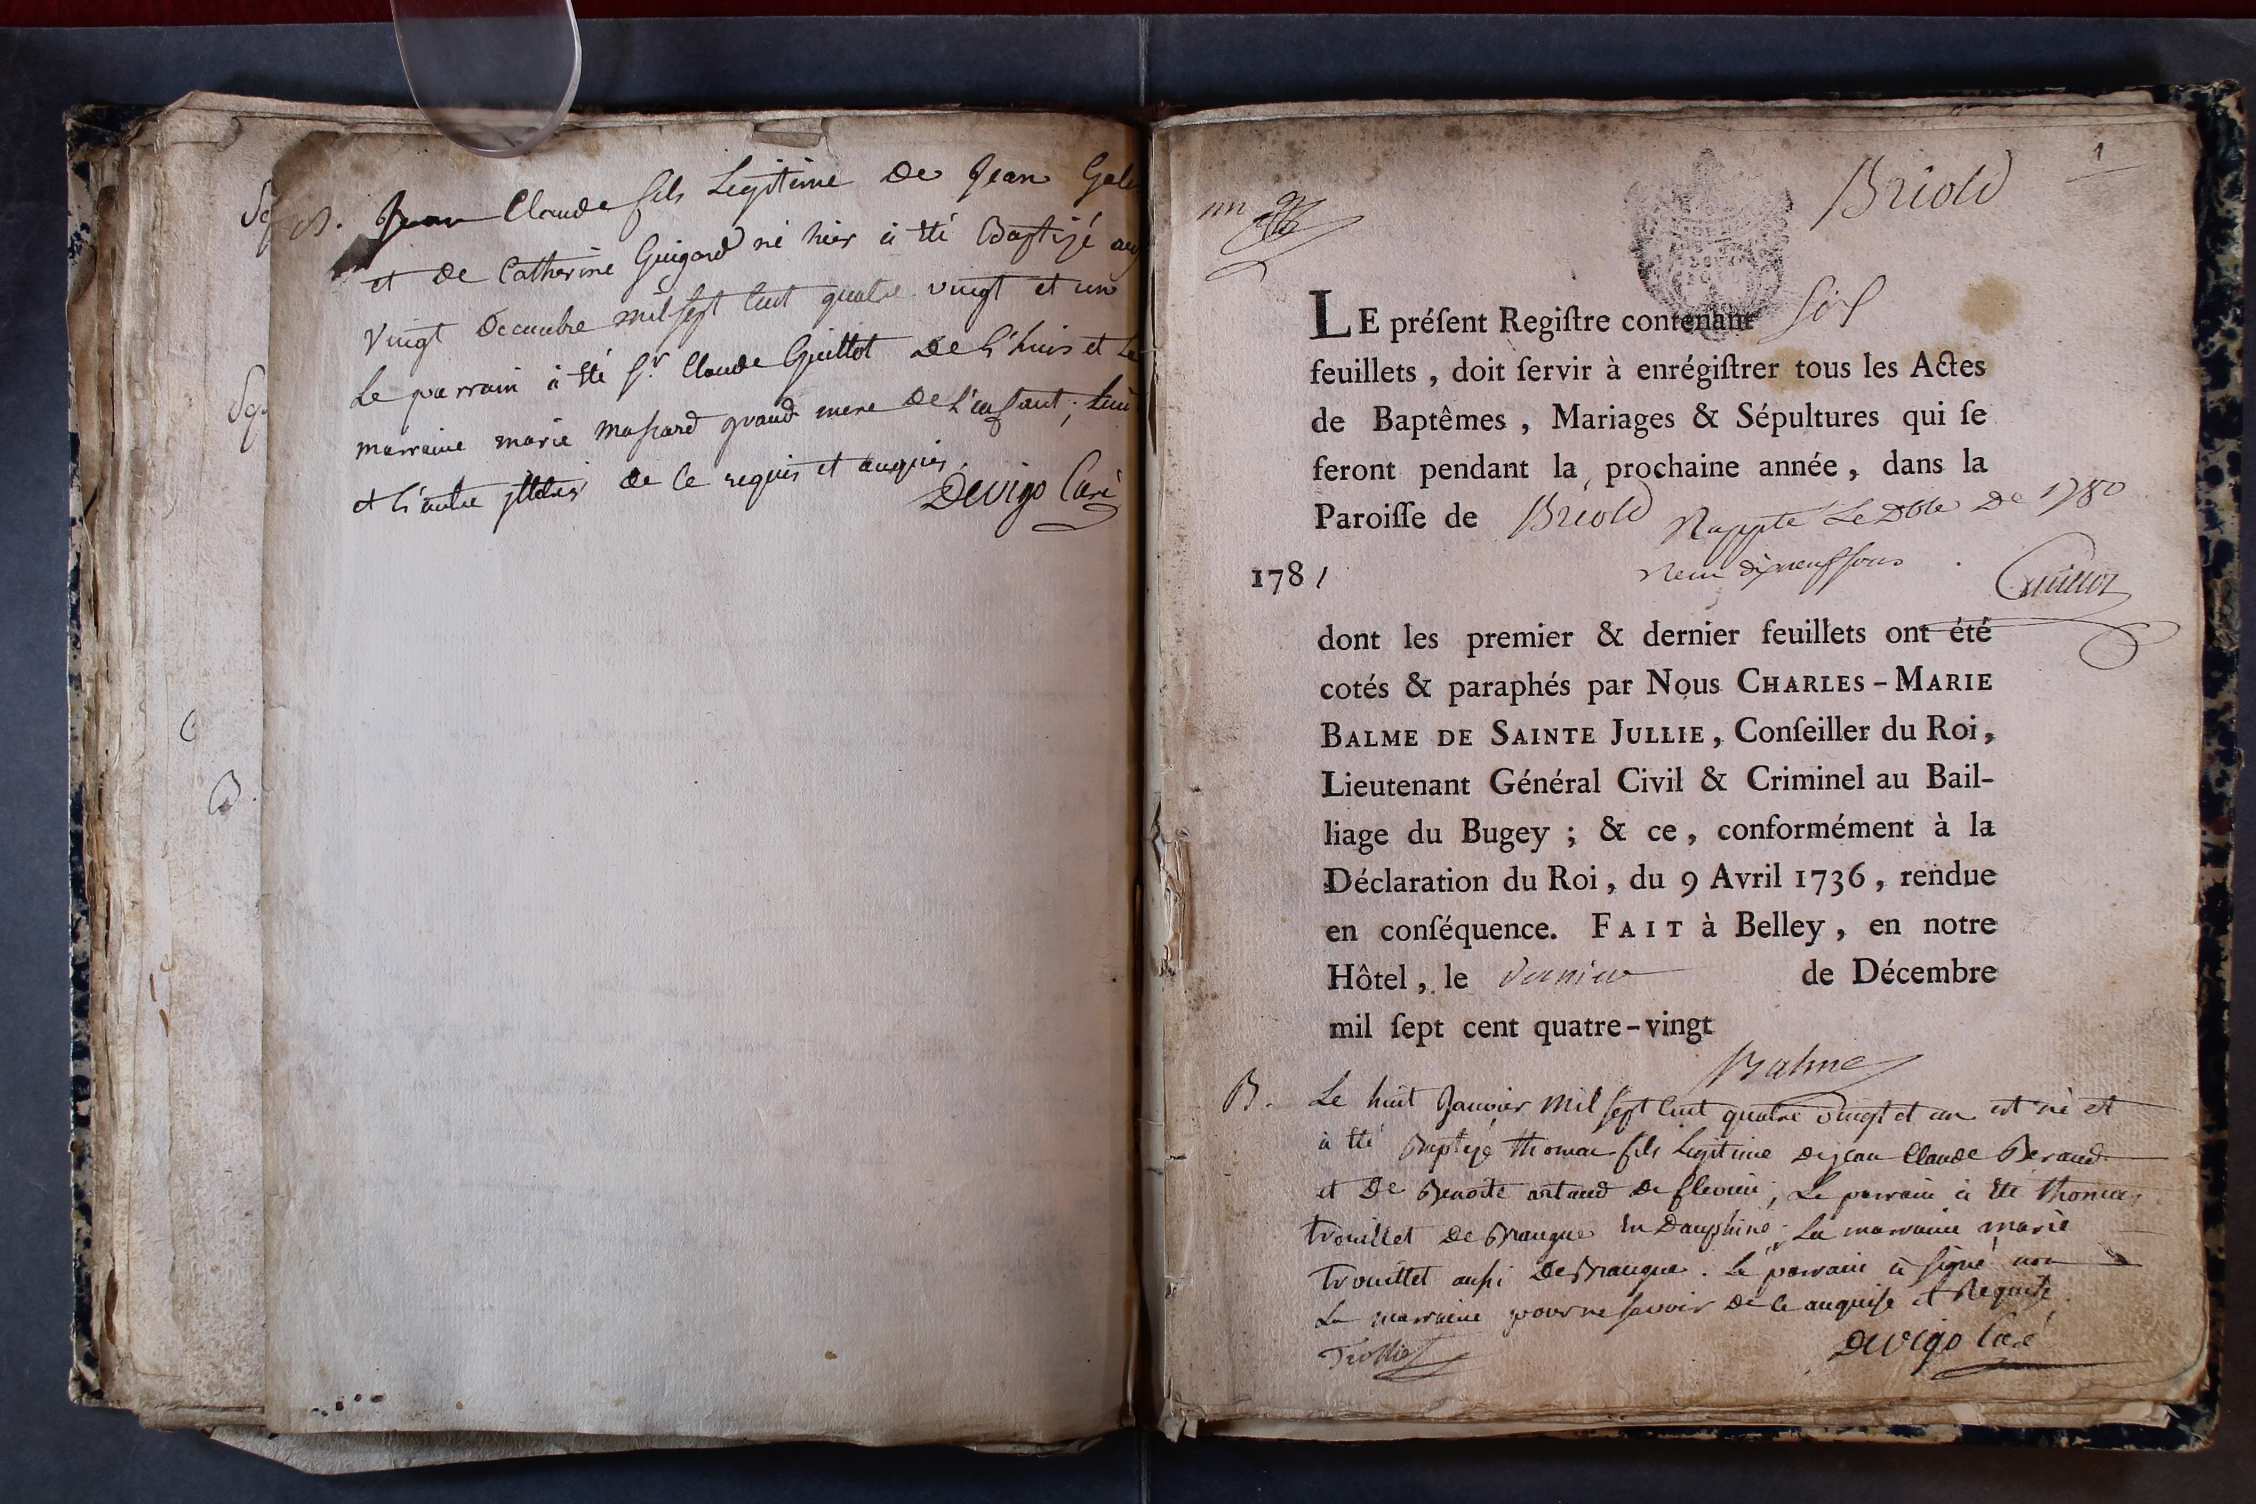 B. Jean Claude fils Legitime de Jean
et de Catherine Guigard né hier à été Baptizé
vingt decembre mil sept cent quatre vingt et un
Le parrain à été Sr. Claude Guillot de L'huis et
marraine marie massard grand mere de L'enfant,
et L'autre de ce requis et enquis.
Devigo Curé
1
Briord
LE préſent Regiſtre contenant six
feuillets, doit ſervir à enrégiſtrer tous les Actes
de Baptêmes, Mariages & Sépultures qui ſe
feront pendant la prochaine année, dans la
Paroiſſe de Briord Rappté Le Dble De 1780
Reçu dixneuf sous
1781
Guillot
dont les premier & dernier feuillets ont été
cotés & paraphés par Nous CHARLES-MARIE
BALME DE SAINTE JULLIE, Conſeiller du Roi,
Lieutenant Général Civil & Criminel au Bail-
liage du Bugey ; & ce, conformément à la
Déclaration du Roi, du 9 Avril 1736, rendue
en conſéquence. FAIT à Belley, en notre
Hôtel, le dernier de Décembre
mil ſept cent quatre-vingt
Balme
B. Le huit Janvier mil sept cent quatre vingt et un est né et
à été Baptizé thomas fils Legitime de jean Claude Beraud
et De Benoite artaud de flevieu, Le parrain à été thomas
trouillet De Brangue en Dauphiné, La marraine marie
trouillet aussi De Brangue. Le parrain à signé non
La marraine pour ne savoir de ce enquise et Requise
Trollie
Devigo Curé